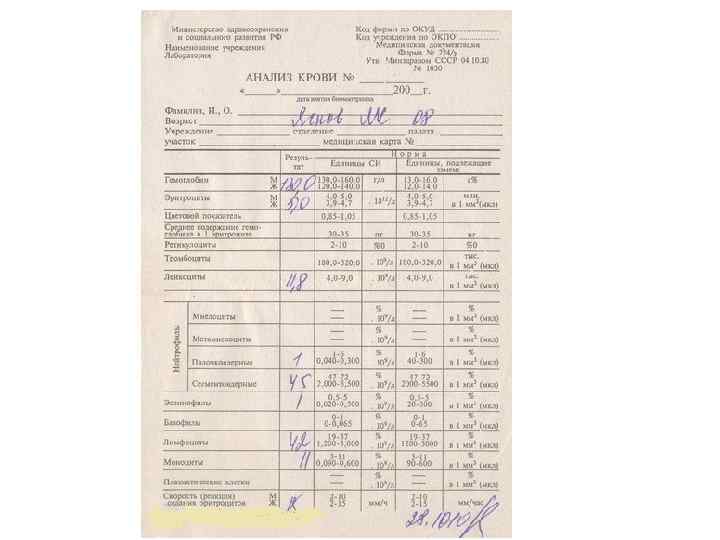 Министерство здравоохранения
и социального развития РФ
Наименование учреждения
Лаборатория
Код формы по ОКУД
Код учреждения по ОКПО
Медицинская документация
Форма № 224/у
Утв. Минздравом СССР 04.10.80
№ 1030
АНАЛИЗ КРОВИ №
« » 200 г.
дата взятия биоматериала
Фамилия, И., О.
Возраст
Учреждение отделение палата
участок медицинская карта №
Резуль- тат Норма
Единицы СИ Единицы, подлежащие замене
Гемоглобин М Ж 130,0-160,0 120,0-140,0 г/л 13,0-16,0 12,0-14,0 г%
Эритроциты М Ж 5,0 4,0-5,0 3,9-4,7 · 10¹²/л 4,0-5,0 3,9-4,7 млн. в 1 мм³ (мкл)
Цветовой показатель 0,85-1,05 0,85-1,05
Среднее содержание гемо-
глобина в 1 эритроците 30-35 пг 30-35 пг
Ретикулоциты 2-10 %0 2-10 %0
Тромбоциты 180,0-320,0 · 10⁹/л 180,0-320,0 тыс. в 1 мм³ (мкл)
Лейкоциты 11,8 4,0-9,0 · 10⁹/л 4,0-9,0 тыс. в 1 мм³ (мкл)
Нейтрофилы
Миелоциты — — % · 10⁹/л — — % в 1 мм³ (мкл)
Метамиелоциты — — % · 10⁹/л — — % в 1 мм³ (мкл)
Палочкоядерные 1 1-6 0,040-0,300 % · 10⁹/л 1-6 40-300 % в 1 мм³ (мкл)
Сегментоядерные 45 47-72 2,000-5,500 % · 10⁹/л 47-72 2000-5500 % в 1 мм³ (мкл)
Эозинофилы 1 0,5-5 0,020-0,300 % · 10⁹/л 0,5-5 20-300 % в 1 мм³ (мкл)
Базофилы 0-1 0-0,065 % · 10⁹/л 0-1 0-65 % в 1 мм³ (мкл)
Лимфоциты 42 19-37 1,200-3,000 % · 10⁹/л 19-37 1200-3000 % в 1 мм³ (мкл)
Моноциты 11 3-11 0,090-0,600 % · 10⁹/л 3-11 90-600 % в 1 мм³ (мкл)
Плазматические клетки — — % · 10⁹/л — — % в 1 мм³ (мкл)
Скорость (реакция)
оседания эритроцитов М Ж 2-10 2-15 мм/ч 2-10 2-15 мм/час